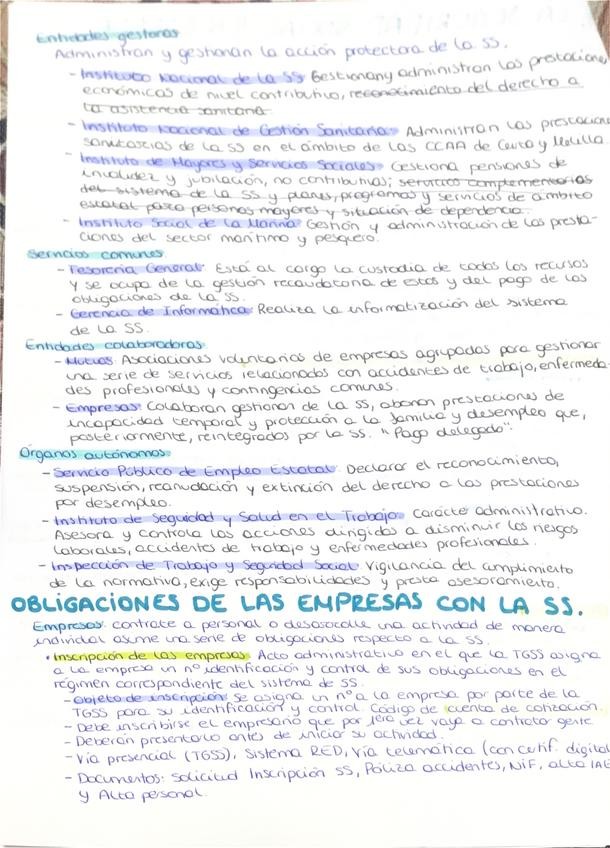 Entidades gestoras
Administran y gestionan la acción protectora de la SS.
- Instituto Nacional de la SS: Gestionan y administran las prestacione
económicas de nivel contributivo, reconocimiento del derecho a
la asistencia sanitaria.
- Instituto Nacional de Gestión Sanitaria: Administran las prestacion
sanitarias de la SS en el ámbito de las CCAA de Ceuta y Melilla.
- Instituto de Mayores y Servicios Sociales: Gestiona pensiones de
invalidez y jubilación, no contributivas; servicios complementarios
del sistema de la SS y planes, programas y servicios de ámbito
estatal para personas mayores y situación de dependencia.
- Instituto Social de la Marina: Gestión y administración de las presta-
ciones del sector marítimo y pesquero.
Servicios comunes
- Tesorería General: Está al cargo la custodia de todos los recursos
y se ocupa de la gestión recaudatoria de estos y del pago de las
obligaciones de la SS.
- Gerencia de Informática: Realiza la informatización del sistema
de la SS.
Entidades colaboradoras
- Mutuas: Asociaciones voluntarias de empresas agrupadas para gestionar
una serie de servicios relacionados con accidentes de trabajo, enfermeda-
des profesionales y contingencias comunes.
- Empresas: Colaboran gestionan de la SS, abonan prestaciones de
incapacidad temporal y protección a la familia y desempleo que,
posteriormente, reintegrados por la SS. "Pago delegado".
Órganos autónomos
- Servicio Público de Empleo Estatal: Declarar el reconocimiento,
suspensión, reanudación y extinción del derecho a las prestaciones
por desempleo.
- Instituto de Seguridad y Salud en el Trabajo: Carácte administrativo.
Asesora y controla las acciones dirigidas a disminuir los riesgos
laborales, accidentes de trabajo y enfermedades profesionales.
- Inspección de Trabajo y Seguridad Social: Vigilancia del cumplimiento
de la normativa, exige responsabilidades y presta asesoramiento.
OBLIGACIONES DE LAS EMPRESAS CON LA SS.
Empresas: contrate a personal o desarrolle una actividad de manera
individual asume una serie de obligaciones respecto a la SS.
• Inscripción de las empresas: Acto administrativo en el que la TGSS asigna
a la empresa un nº identificación y control de sus obligaciones en el
régimen correspondiente del sistema de SS.
- Objeto de inscripción: Se asigna un nº a la empresa por parte de la
TGSS para su identificación y control. Código de cuenta de cotización.
- Debe inscribirse el empresario que por 1era vez vaya a contratar gente
- Deberán presentarlo antes de iniciar su actividad.
- Vía presencial (TGSS), Sistema RED, Vía telemática (con certif. digital
- Documentos: Solicitud Inscripción SS, Póliza accidentes, NIF, alta IAE
y Alta personal.